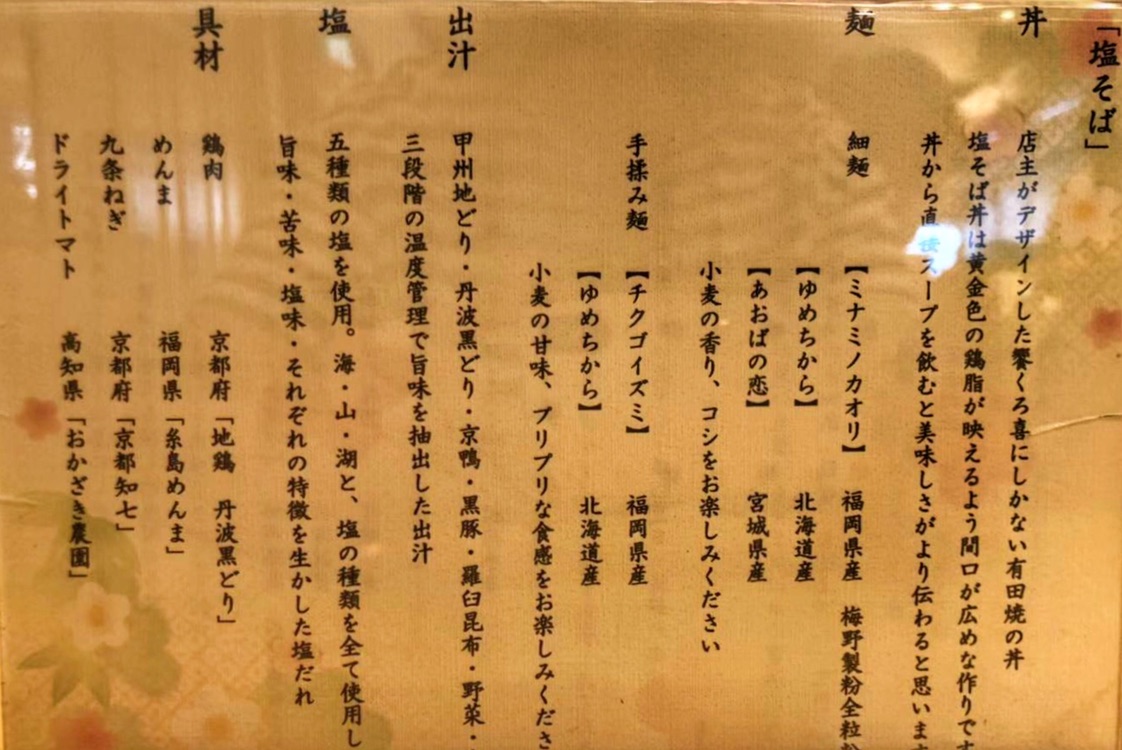 「塩そば」
丼
店主がデザインした饗くろ喜にしかない有田焼の丼
塩そば丼は黄金色の鶏脂が映えるよう間口が広めな作りです
丼から直接スープを飲むと美味しさがより伝わると思います
麺
細麺
【ミナミノカオリ】 福岡県産 梅野製粉全粒粉
【ゆめちから】 北海道産
【あおばの恋】 宮城県産
小麦の香り、コシをお楽しみください
手揉み麺
【チクゴイズミ】 福岡県産
【ゆめちから】 北海道産
小麦の甘味、プリプリな食感をお楽しみくださ
出汁
甲州地どり・丹波黒どり・京鴨・黒豚・羅臼昆布・野菜・
三段階の温度管理で旨味を抽出した出汁
塩
五種類の塩を使用。海・山・湖と、塩の種類を全て使用し
旨味・苦味・塩味・それぞれの特徴を生かした塩だれ
具材
鶏肉 京都府「地鶏 丹波黒どり」
めんま 福岡県「糸島めんま」
九条ねぎ 京都府「京都知七」
ドライトマト 高知県「おかざき農園」